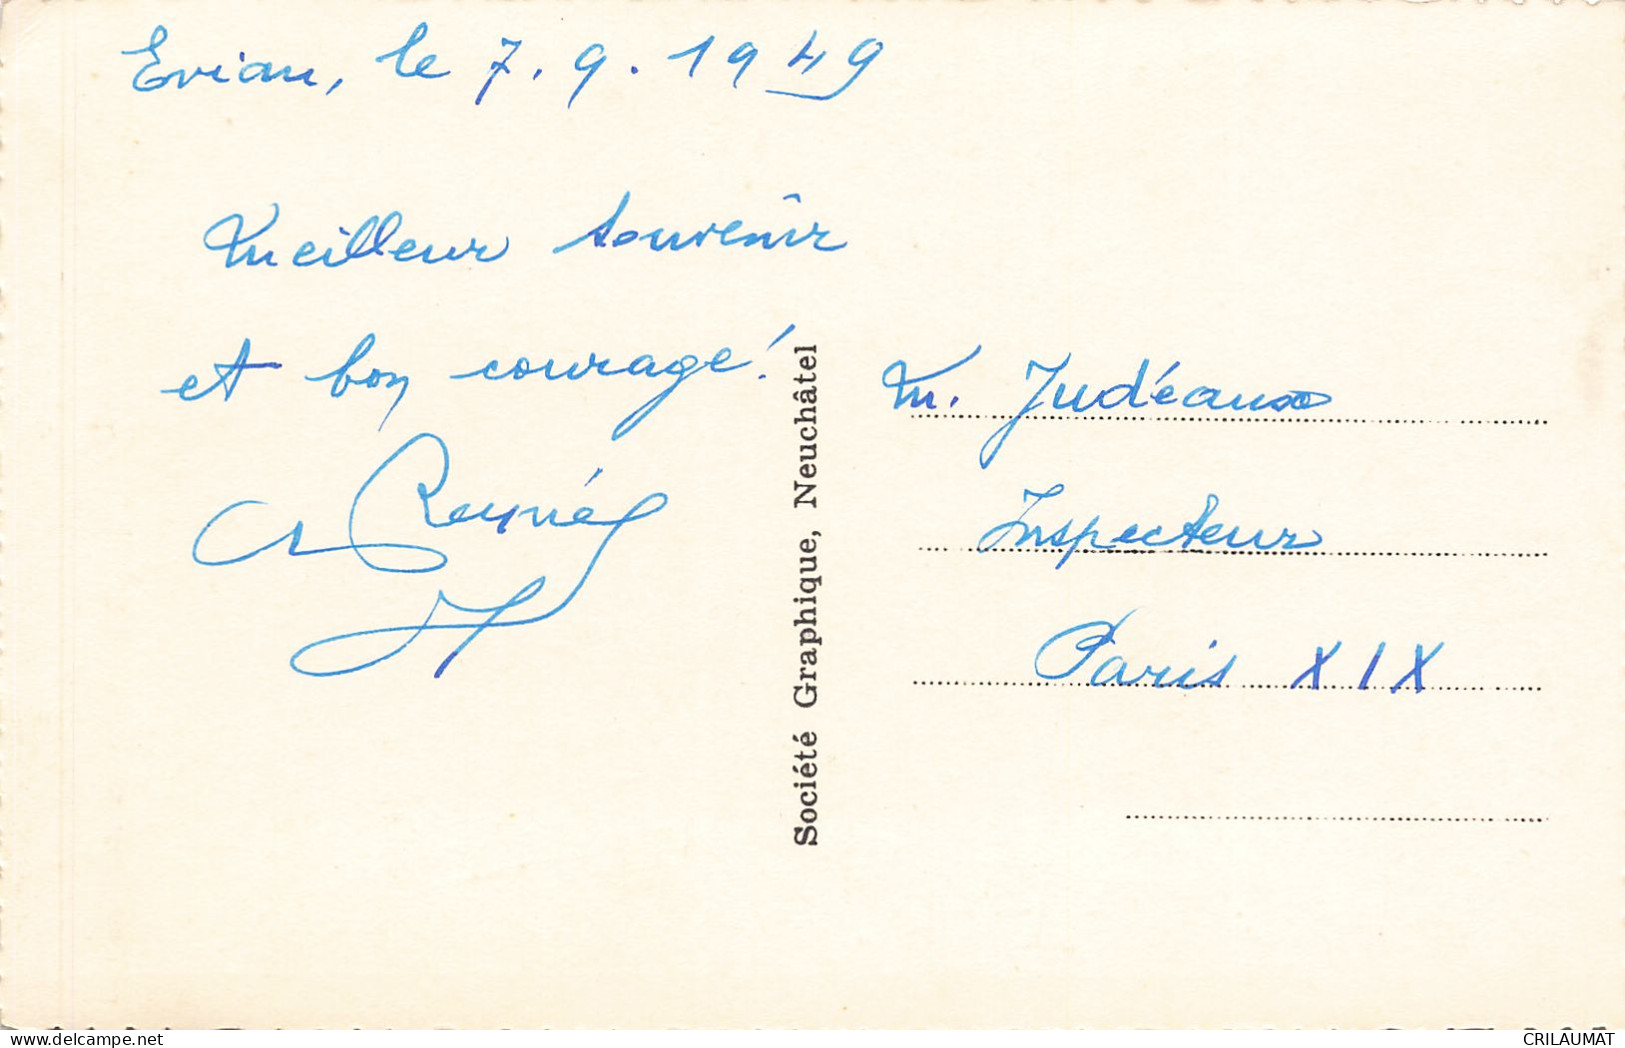 Evian, le 7.9.1949
Meilleur souvenir
et bon courage!
M. Judéaux
Inspecteur
Paris XIX
Société Graphique, Neuchâtel
CRILAUMAT